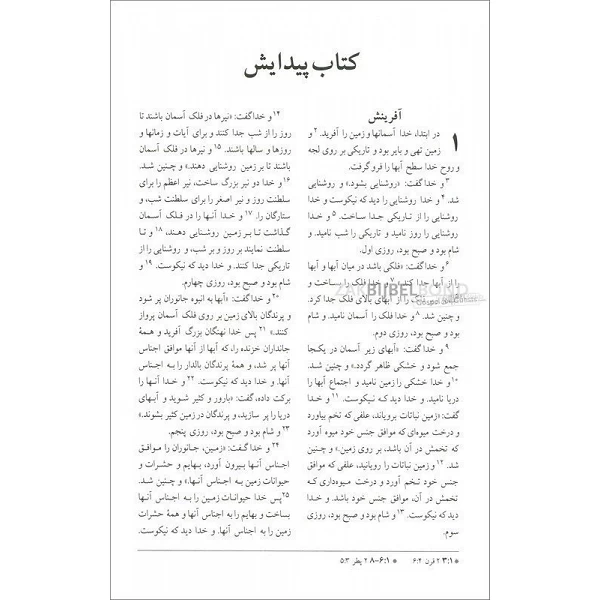 کتاب پیدایش
آفرینش
۱ در ابتدا، خدا آسمانها و زمین را آفرید. ۲ و
زمین تهی و بایر بود و تاریکی بر روی لجه
و روح خدا سطح آبها را فرو گرفت.
۳ و خدا گفت: «روشنایی بشود.» و روشنایی
شد. ۴ و خدا روشنایی را دید که نیکوست و خدا
روشنایی را از تاریکی جدا ساخت. ۵ و خدا
روشنایی را روز نامید و تاریکی را شب نامید. و
شام بود و صبح بود، روزی اول.
۶ و خدا گفت: «فلکی باشد در میان آبها و آبها
را از آبها جدا کند.» ۷ و خدا فلک را
را از آبهای بالای فلک جدا کرد.
و چنین شد. ۸ و خدا فلک را آسمان نامید. و شام
بود و صبح بود، روزی دوم.
۹ و خدا گفت: «آبهای زیر آسمان در یکجا
جمع شود و خشکی ظاهر گردد.» و چنین شد.
۱۰ و خدا خشکی را زمین نامید و اجتماع آبها را
دریا نامید. و خدا دید که نیکوست. ۱۱ و خدا
گفت: «زمین نباتات برویاند، علفی که تخم بیاورد
و درخت میوه‌ای که موافق جنس خود میوه آورد
که تخمش در آن باشد، بر روی زمین.» و چنین
شد. ۱۲ و زمین نباتات را رویانید، علفی که موافق
جنس خود تخم آورد و درخت میوه‌داری که
تخمش در آن، موافق جنس خود باشد. و خدا
دید که نیکوست. ۱۳ و شام بود و صبح بود، روزی
سوم.
۱۴ و خدا گفت: «نیرها در فلک آسمان باشند تا
روز را از شب جدا کنند و برای آیات و زمانها و
روزها و سالها باشند. ۱۵ و نیرها در فلک آسمان
باشند تا بر زمین روشنایی دهند.» و چنین شد.
۱۶ و خدا دو نیر بزرگ ساخت، نیر اعظم را برای
سلطنت روز و نیر اصغر را برای سلطنت شب، و
ستارگان را. ۱۷ و خدا آنها را در فلک آسمان
گذاشت تا بر زمین روشنایی دهند، ۱۸ و تا
سلطنت نمایند بر روز و بر شب، و روشنایی را از
تاریکی جدا کنند. و خدا دید که نیکوست. ۱۹ و
شام بود و صبح بود، روزی چهارم.
۲۰ و خدا گفت: «آبها به انبوه جانوران پر شود
و پرندگان بالای زمین بر روی فلک آسمان پرواز
کنند.» ۲۱ پس خدا نهنگان بزرگ آفرید و همهٔ
جانداران خزنده را، که آبها از آنها موافق اجناس
آنها پر شد، و همهٔ پرندگان بالدار را به اجناس
آنها. و خدا دید که نیکوست. ۲۲ و خدا آنها را
برکت داده، گفت: «بارور و کثیر شوید و آبهای
دریا را پر سازید، و پرندگان در زمین کثیر بشوند.»
۲۳ و شام بود و صبح بود، روزی پنجم.
۲۴ و خدا گفت: «زمین، جانوران را موافق
اجناس آنها بیرون آورد، بهایم و حشرات و
حیوانات زمین به اجناس آنها.» و چنین شد.
۲۵ پس خدا حیوانات زمین را به اجناس آنها
بساخت و بهایم را به اجناس آنها و همهٔ حشرات
زمین را به اجناس آنها. و خدا دید که نیکوست.
* ۳:۱ ۲ قرن ۶:۴ * ۶:۱–۸ ۲ پطر ۵:۳
ZAKBIJBELBOND